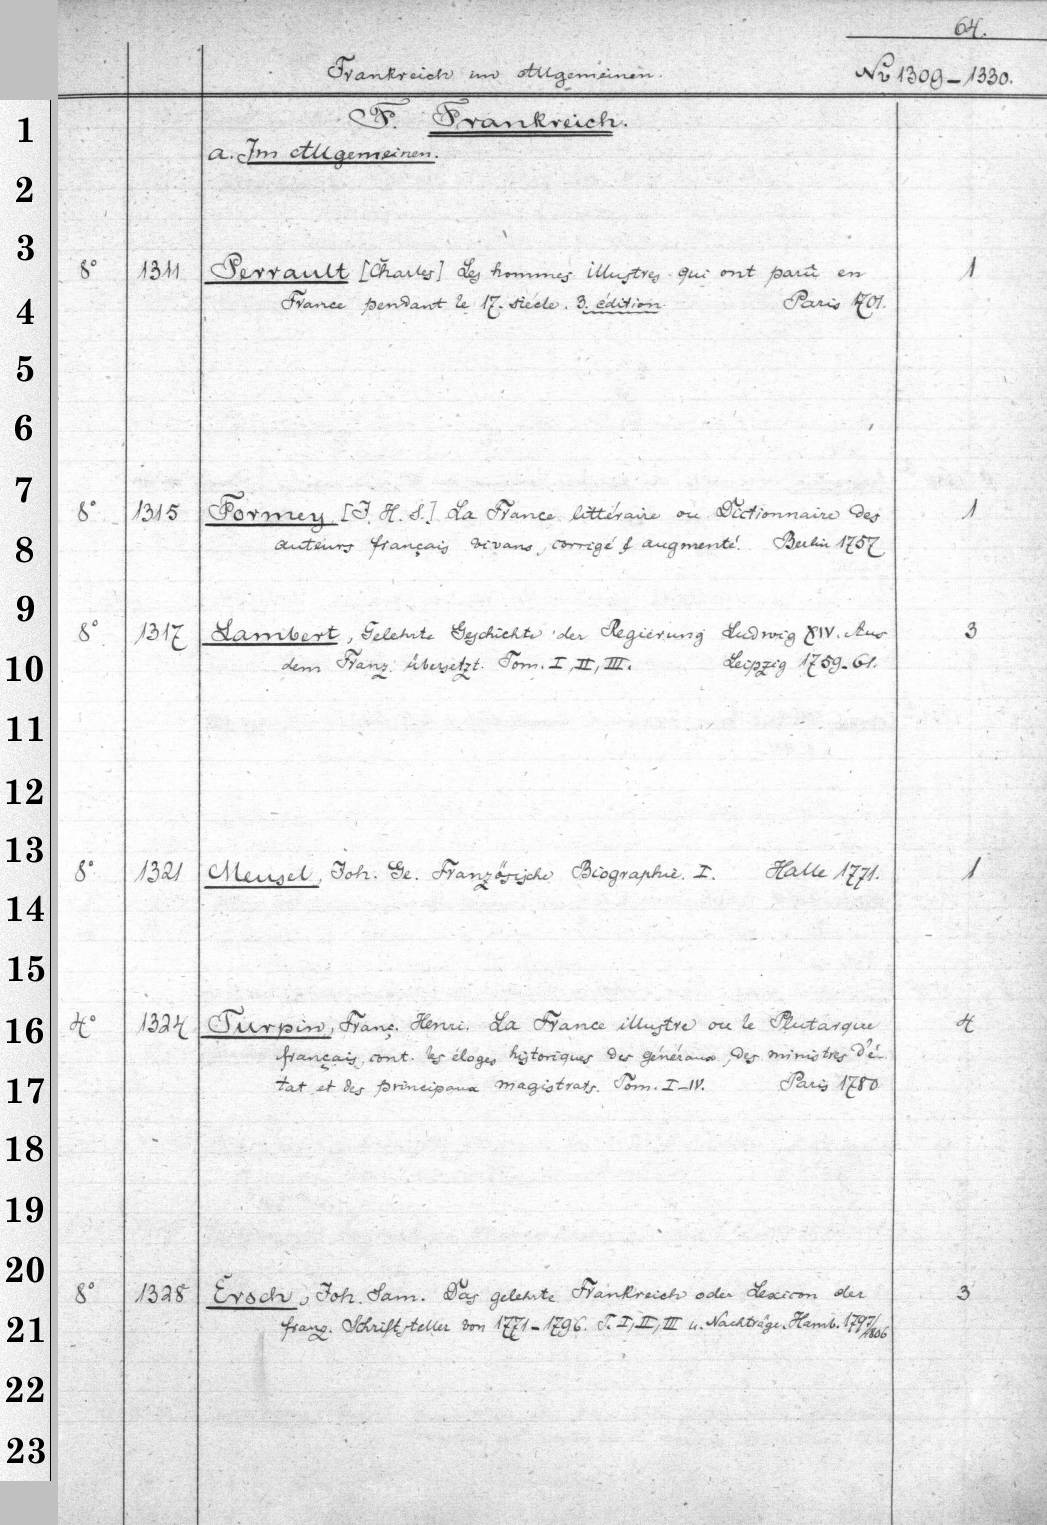 64.
Frankreich im Allgemeinen. No 1309-1330.
1 F. Frankreich.
a. Im Allgemeinen.
2
3 8° 1311 Perrault [Charles] Les hommes illustres qui ont parû en 1
4 France pendant le 17. siécle. 3. édition Paris 1701.
5
6
7 8° 1315 Formey [J. H. S.] La France littéraire ou Dictionnaire des 1
8 auteurs français vivans, corrigé & augmenté. Berlin 1757
9 8° 1317 Lambert, Gelehrte Geschichte der Regierung Ludwig XIV. Aus 3
10 dem Franz. übersetzt. Tom. I, II, III. Leipzig 1759-61.
11
12
13 8° 1321 Meusel, Joh. Ge. Französische Biographie. I. Halle 1771. 1
14
15
16 4° 1324 Turpin, Franç. Henri. La France illustre ou le Plutarque 4
français, cont. les éloges historiques des généraux, des ministres d'é-
17 tat et des principaux magistrats. Tom. I-IV. Paris 1780
18
19
20 8° 1328 Ersch, Joh. Sam. Das gelehrte Frankreich oder Lexicon der 3
21 franz. Schriftsteller von 1771-1796. T. I, II, III u. Nachträge. Hamb. 1797/1806
22
23